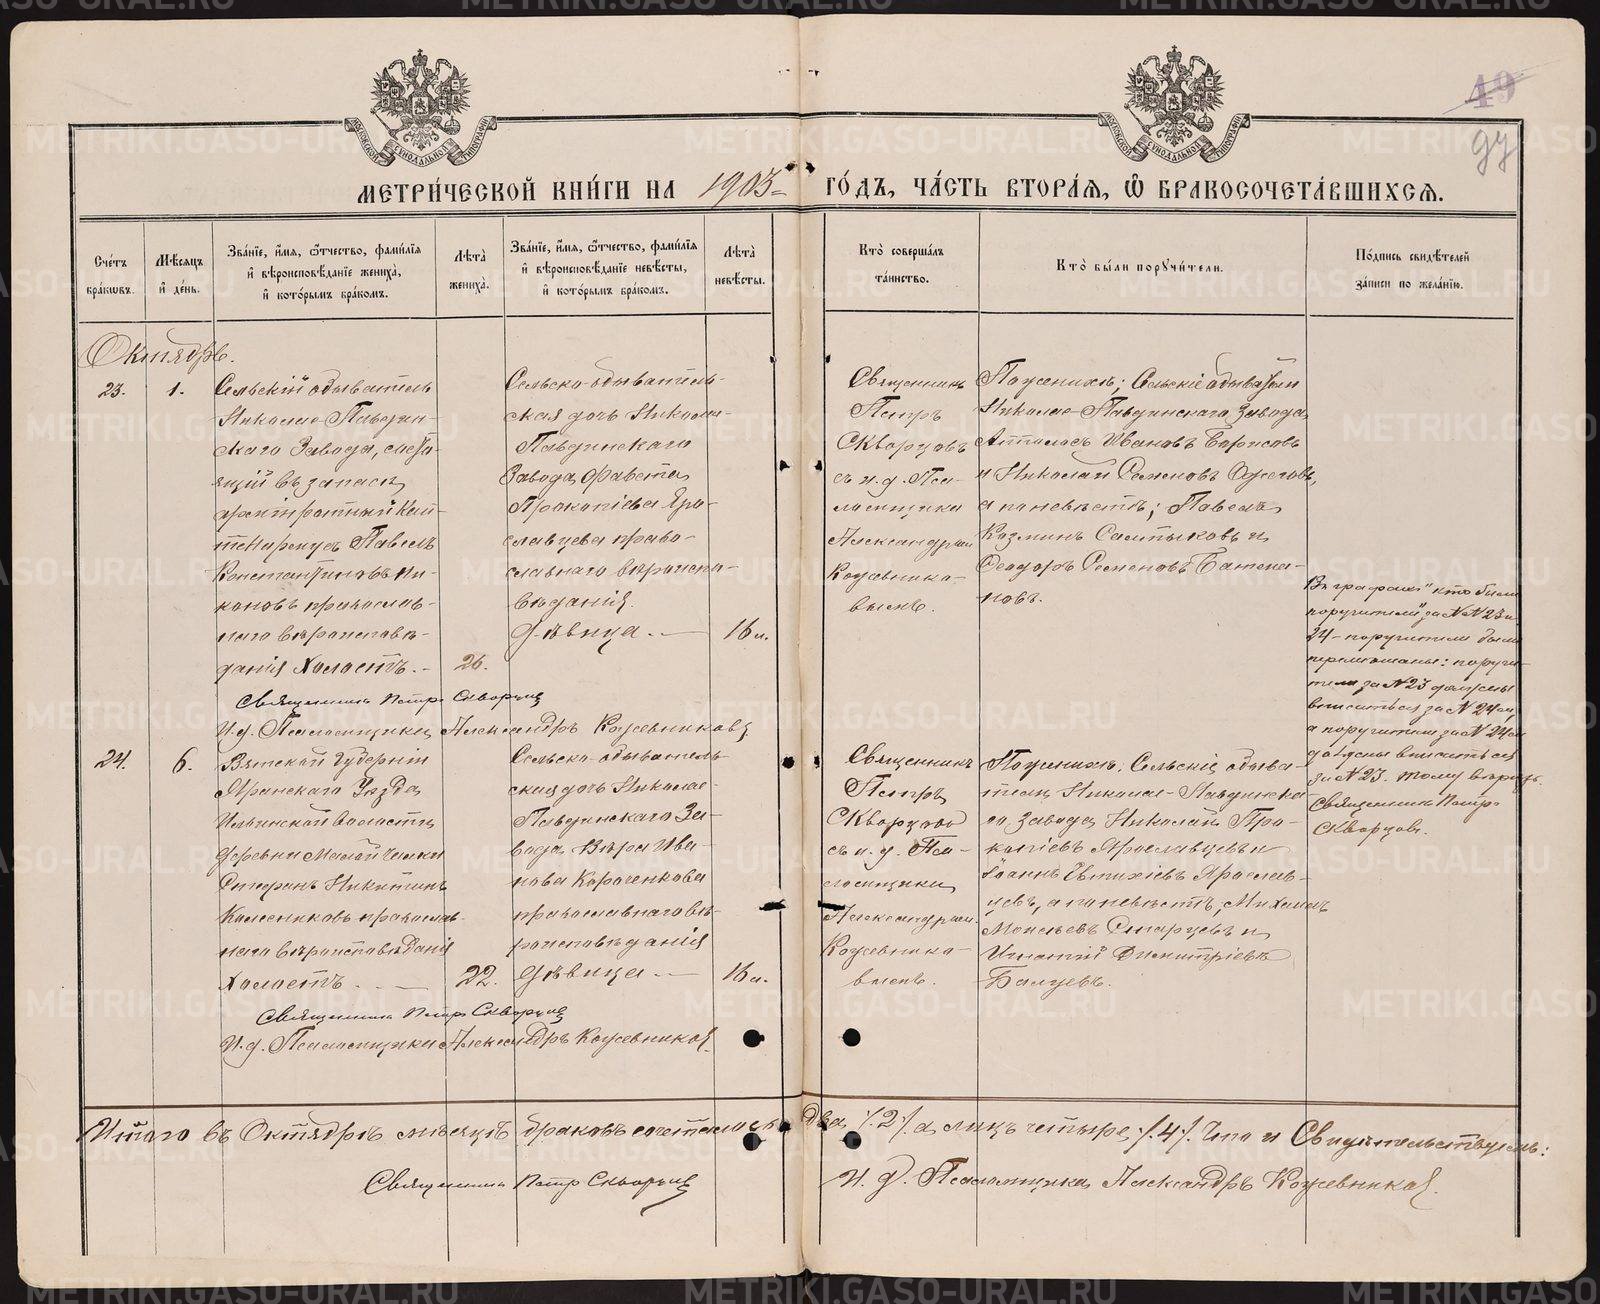 49
97
МОСКОВСКОЙ СѴНОДАЛЬНОЙ ТИПОГРАФІИ
МОСКОВСКОЙ СѴНОДАЛЬНОЙ ТИПОГРАФІИ
МЕТРИ́ЧЕСКОЙ КНИ́ГИ НА 1903 ГО́ДЪ, ЧА́СТЬ ВТОРА́Я, Ѽ БРАКОСОЧЕТА́ВШИХСЯ.
Сче́тъ
бра́кѡвъ.
Мѣсяцъ
и҆ де́нь.
Зва́нїе, и҆́мя, ѻ҆́тчество, фами́лїя
и҆ вѣроисповѣ́данїе жениха̀,
и҆ кото́рымъ бра́комъ.
Лѣта̀
жениха̀.
Зва́нїе, и҆́мя, ѻ҆́тчество, фами́лїя
и҆ вѣроисповѣ́данїе невѣ́сты,
и҆ кото́рымъ бра́комъ.
Лѣта̀
невѣ́сты.
Кто̀ соверша́лъ
та́инство.
Кто̀ бы́ли порꙋчи́тели.
По́дпись свидѣ́телей
за́писи по жела́нїю.
Октябрь.
23.
1.
Сельскій обыватель
Николае-Павдин-
скаго Завода, состо-
ящій въ запасѣ
Павелъ
Константиновъ Ни-
коновъ православ-
наго вѣроисповѣ-
данія Холостъ.
26.
Сельско-обыватель-
ская дочь Николае-
Павдинскаго
Завода Фавста
Прокопіева Яро-
славцева право-
славнаго вѣроиспо-
вѣданія.
Дѣвица.
16 л.
Священникъ
Петръ
Скворцовъ
съ и.д. Пса-
ломщика
Александромъ
Кожевнико-
вымъ.
По женихѣ; Сельскіе обыватели
Николае-Павдинскаго Завода
Ивановъ Борисовъ
и Николай Семеновъ
а по невѣстѣ; Павелъ
Козминъ Салтыковъ и
Ѳеодоръ Семеновъ Батма-
новъ.
Въ графѣ "кто были
поручители" за №№ 23 и
24 - поручители были
перемѣшаны: поручи-
тели за № 23 должны
вписаться за № 24ый
а поручители за № 24ый
должны вписаться
за № 23. Тому вѣрить
Священникъ Петръ
Скворцовъ.
Священникъ Петръ Скворцовъ
И.д. Псаломщика Александръ Кожевниковъ
24.
6.
Вятской Губерніи
Яранскаго Уѣзда
Ильинской волости
деревни Малой
Стефанъ Никитинъ
Колесниковъ православ-
наго вѣроисповѣданія
Холостъ.
22.
Сельско-обыватель-
ская дочь Николае-
Павдинскаго За-
вода Вѣра Ива-
нова Короченкова
православнаго вѣ-
роисповѣданія
Дѣвица
16 л.
Священникъ
Петръ
Скворцовъ
съ и.д. Пса-
ломщика
Александромъ
Кожевнико-
вымъ.
По женихѣ; Сельскіе обыва-
тели Николае-Павдинска-
го завода Николай Про-
копіевъ Ярославцевъ и
Іоаннъ Евтихіевъ Ярослав-
цевъ, а по невѣстѣ; Михаилъ
Моисѣевъ Старцевъ и
Игнатій Димитріевъ
Балуевъ.
Священникъ Петръ Скворцовъ
И.д. Псаломщика Александръ Кожевниковъ
Итого въ Октябрѣ мѣсяцѣ браковъ сочеталось два /.2/. а лицъ четыре /.4/. Что и Свидѣтельствуемъ:
Священникъ Петръ Скворцовъ
И.д. Псаломщика Александръ Кожевниковъ.
METRIKI.GASO-URAL.RU